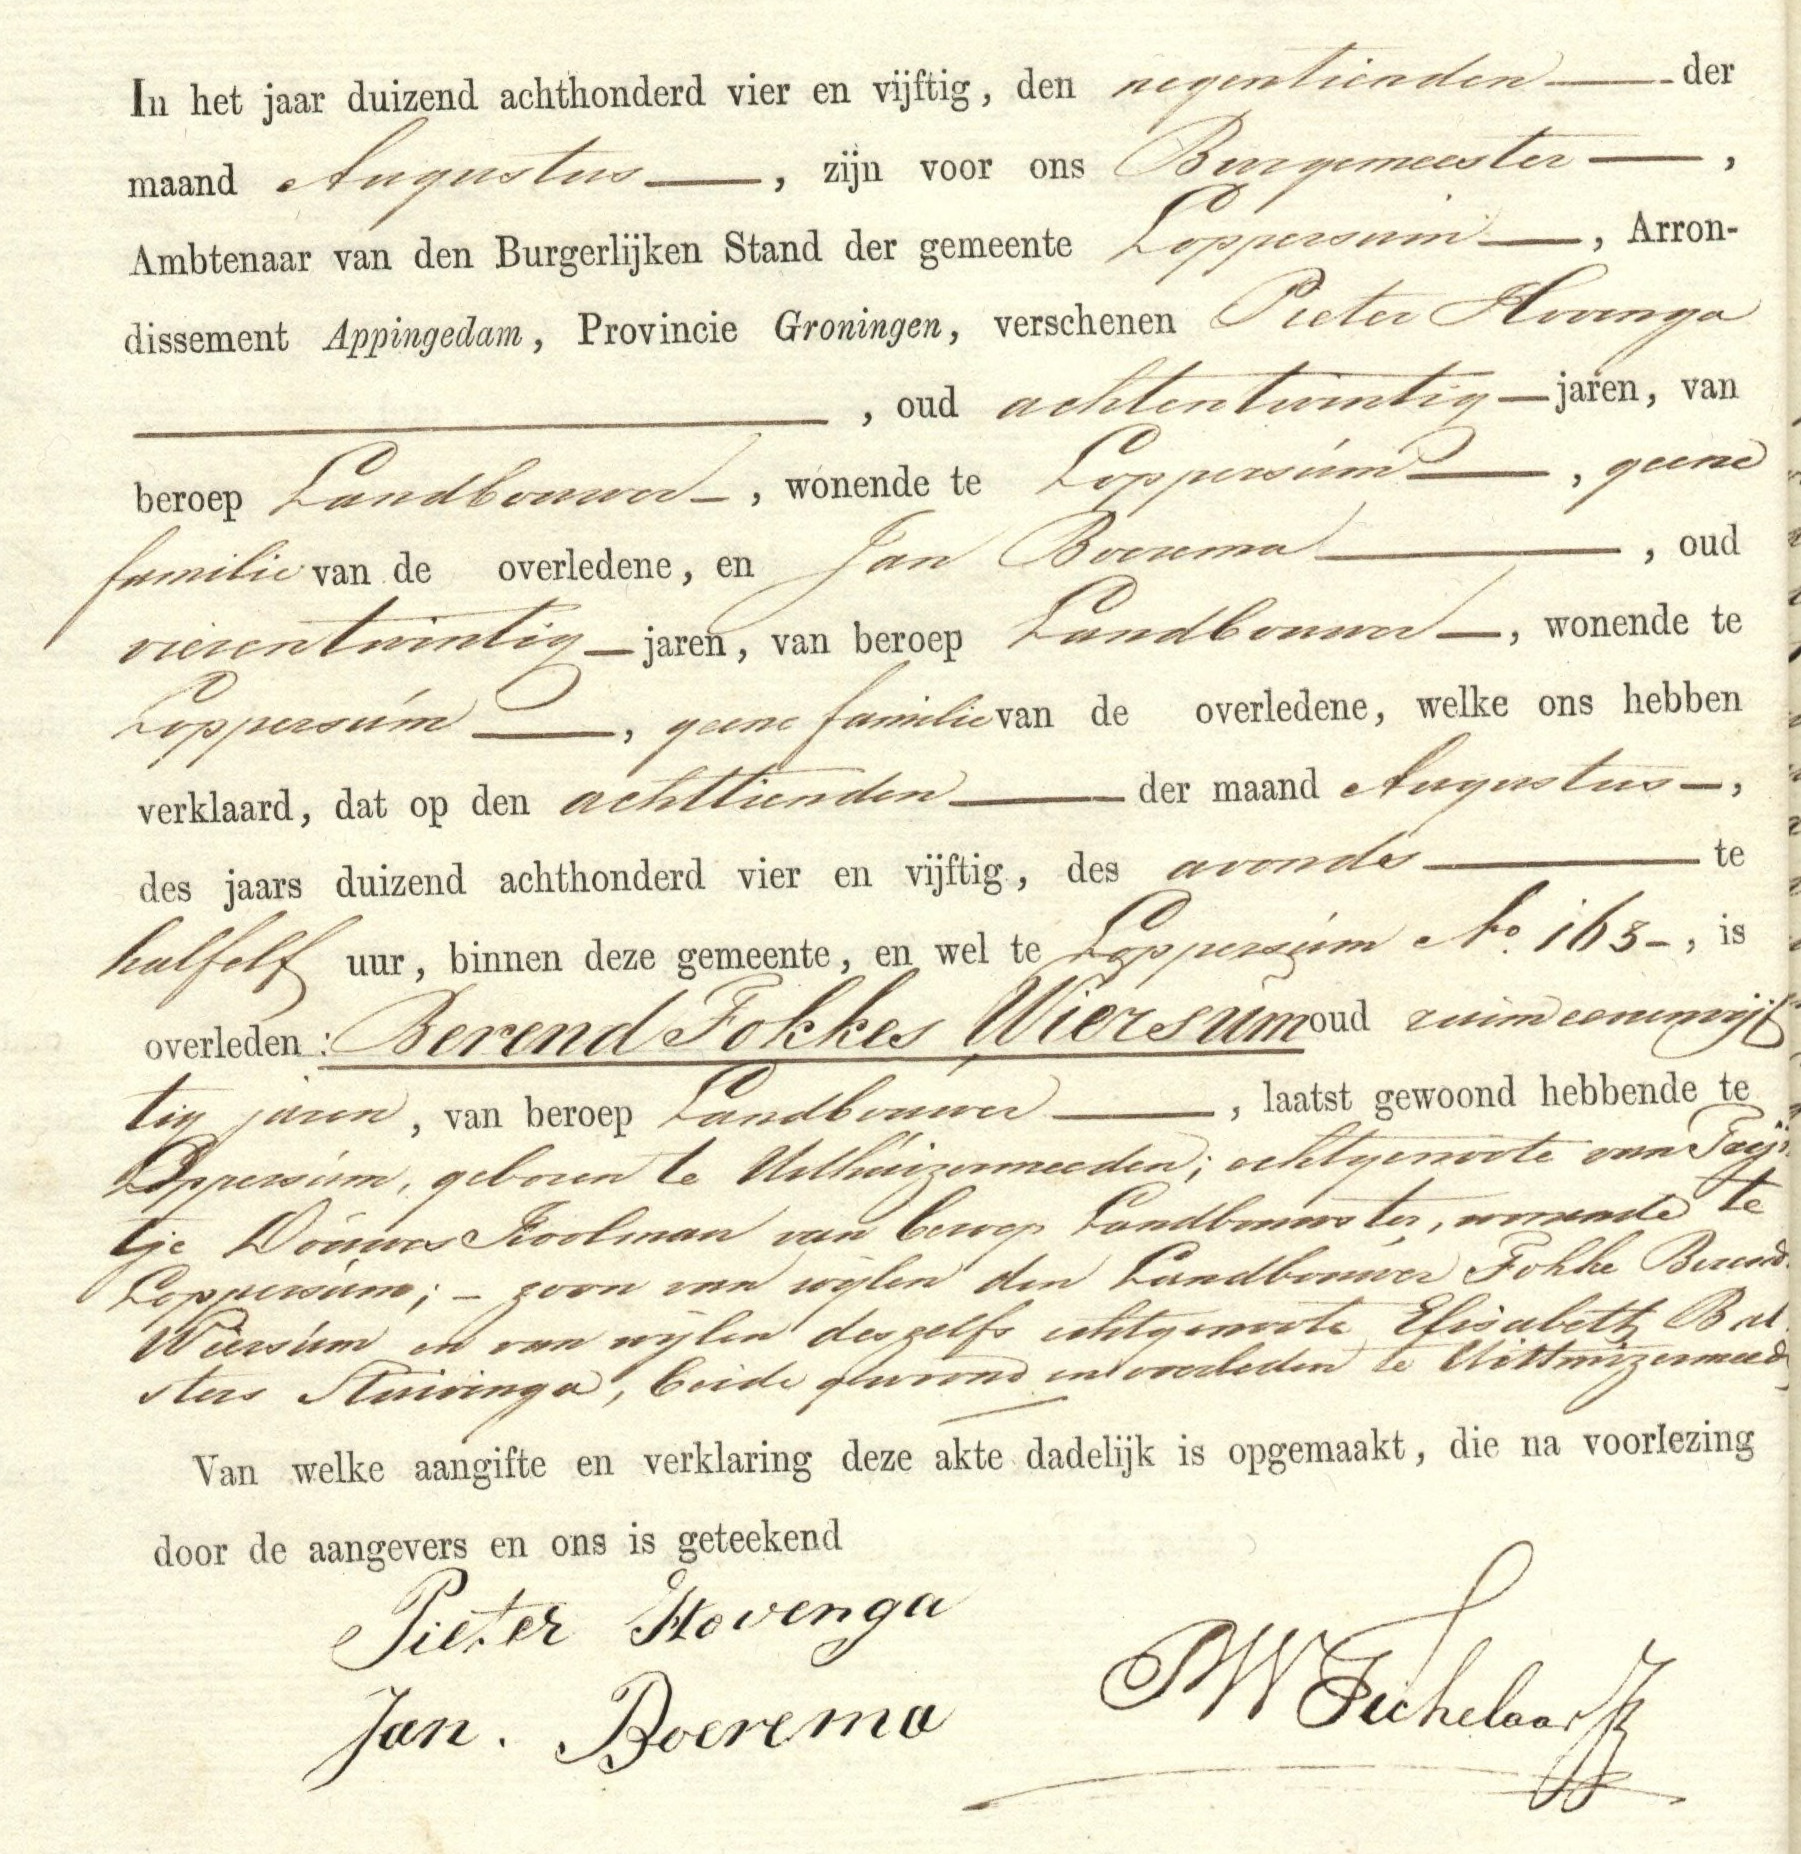 In het jaar duizend achthonderd vier en vijftig, den negentienden — der
maand Augustus —, zijn voor ons Burgemeester —,
Ambtenaar van den Burgerlijken Stand der gemeente Loppersum —, Arron-
dissement Appingedam, Provincie Groningen, verschenen Pieter Hovenga
—, oud achtentwintig — jaren, van
beroep Landbouwer —, wonende te Loppersum —, geene
familie van de overledene, en Jan Boerema —, oud
vierentwintig — jaren, van beroep Landbouwer —, wonende te
Loppersum —, geene familie van de overledene, welke ons hebben
verklaard, dat op den achttienden — der maand Augustus —,
des jaars duizend achthonderd vier en vijftig, des avonds — te
halfelf uur, binnen deze gemeente, en wel te Loppersum No. 163 —, is
overleden: Berend Fokkes Wiersum oud ruim eenenvijf
tig jaren, van beroep Landbouwer —, laatst gewoond hebbende te
Loppersum, geboren te Uithuizermeeden; echtgenoote van
tje Douwes Koolman van beroep Landbouwster, wonende te
Loppersum; – zoon van wijlen den Landbouwer Fokke Berends
Wiersum en van wijlen deszelfs echtgenoote Elisabeth Bal
sters Stuivinga, beide gewoond en overleden te Uithuizermeeden
Van welke aangifte en verklaring deze akte dadelijk is opgemaakt, die na voorlezing
door de aangevers en ons is geteekend
Pieter Hovenga
Jan. Boerema